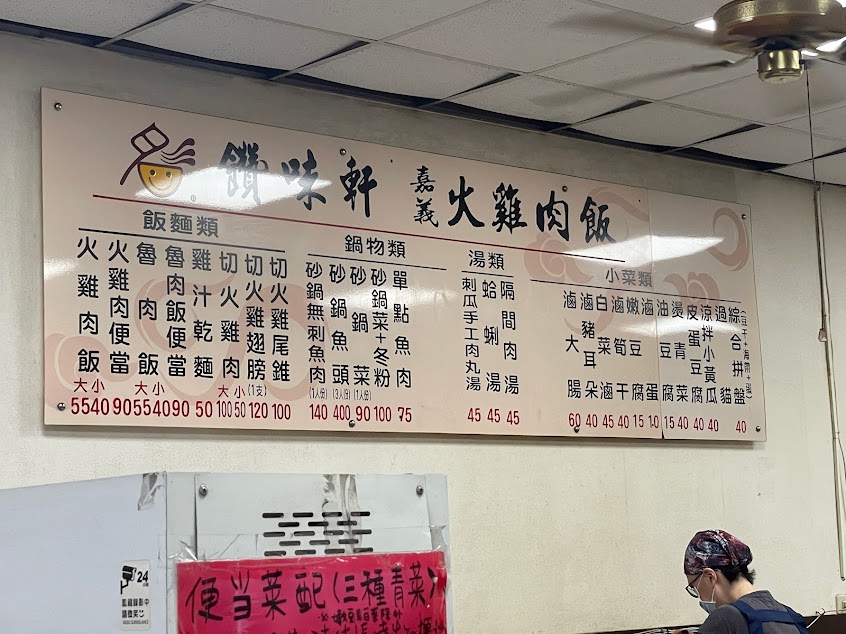 鑽味軒 嘉義 火雞肉飯
飯麵類
火雞肉飯 大55 小40
火雞肉便當 90
魯肉飯 大55 小40
魯肉飯便當 90
雞汁乾麵 50
切火雞肉 大100 小50
切火雞翅膀 (1支) 120
切火雞尾錐 100
鍋物類
砂鍋無刺魚肉 (1人份) 140
砂鍋魚頭 (3人份) 400
砂鍋菜 (1人份) 90
砂鍋菜+冬粉 100
單點魚肉 75
湯類
刺瓜手工肉丸湯 45
蛤蜊湯 45
隔間肉湯 45
小菜類
滷大腸 60
滷豬耳朵 40
白菜滷 45
滷筍干 40
嫩豆腐 15
滷蛋 10
油豆腐 15
燙青菜 40
皮蛋豆腐 40
涼拌小黃瓜 40
過貓
綜合拼盤 40
便当菜配(三種青菜)
24
錄影中